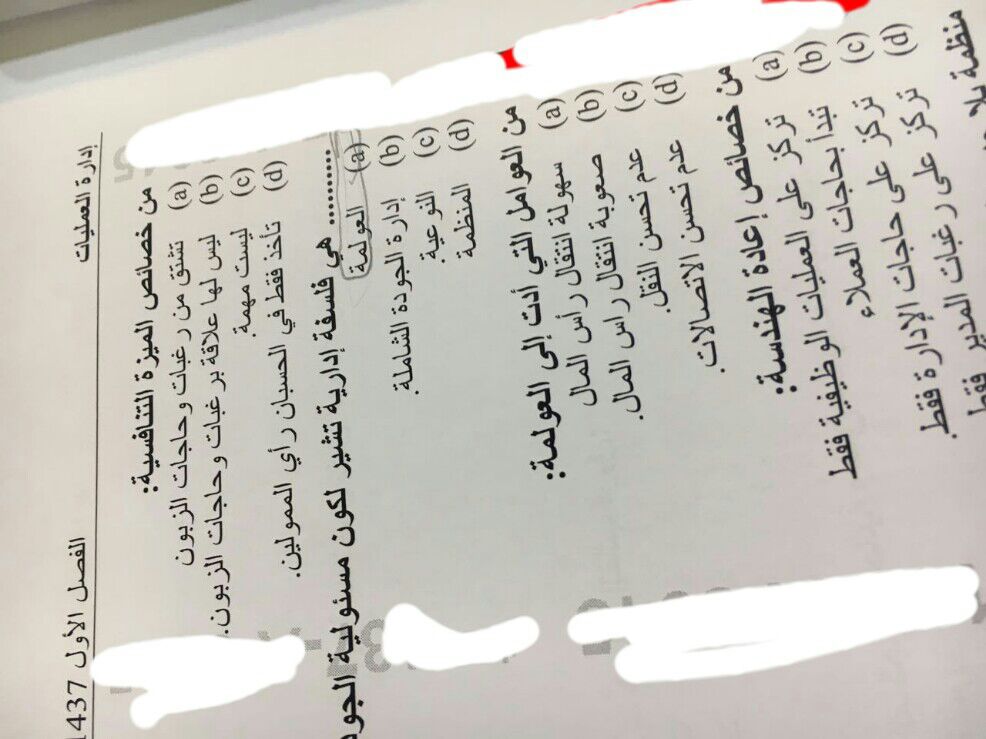 إدارة العمليات
الفصل الأول 1437
من خصائص الميزة التنافسية:
(a) تشتق من رغبات وحاجات الزبون
(b) ليس لها علاقة برغبات وحاجات الزبون.
(c) ليست مهمة.
(d) تأخذ فقط في الحسبان رأي الممولين.
.......... هي فلسفة إدارية تشير لكون مسئولية
(a) العولمة
(b) إدارة الجودة الشاملة.
(c) النوعية
(d) المنظمة
من العوامل التي أدت إلى العولمة:
(a) سهولة انتقال رأس المال
(b) صعوبة انتقال رأس المال.
(c) عدم تحسن النقل.
(d) عدم تحسن الاتصالات.
من خصائص إعادة الهندسة:
(a) تركز على العمليات الوظيفية فقط
(b) تبدأ بحاجات العملاء
(c) تركز على حاجات الإدارة فقط.
(d) تركز على رغبات المدير فقط
منظمة